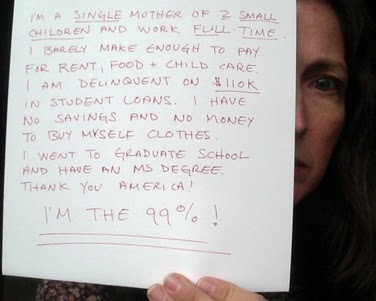 I'M A SINGLE MOTHER OF 2 SMALL
CHILDREN AND WORK FULL-TIME.
I BARELY MAKE ENOUGH TO PAY
FOR RENT, FOOD + CHILD CARE.
I AM DELINQUENT ON $110K
IN STUDENT LOANS. I HAVE
NO SAVINGS AND NO MONEY
TO BUY MYSELF CLOTHES.
I WENT TO GRADUATE SCHOOL
AND HAVE AN MS DEGREE.
THANK YOU AMERICA!
I'M THE 99%!